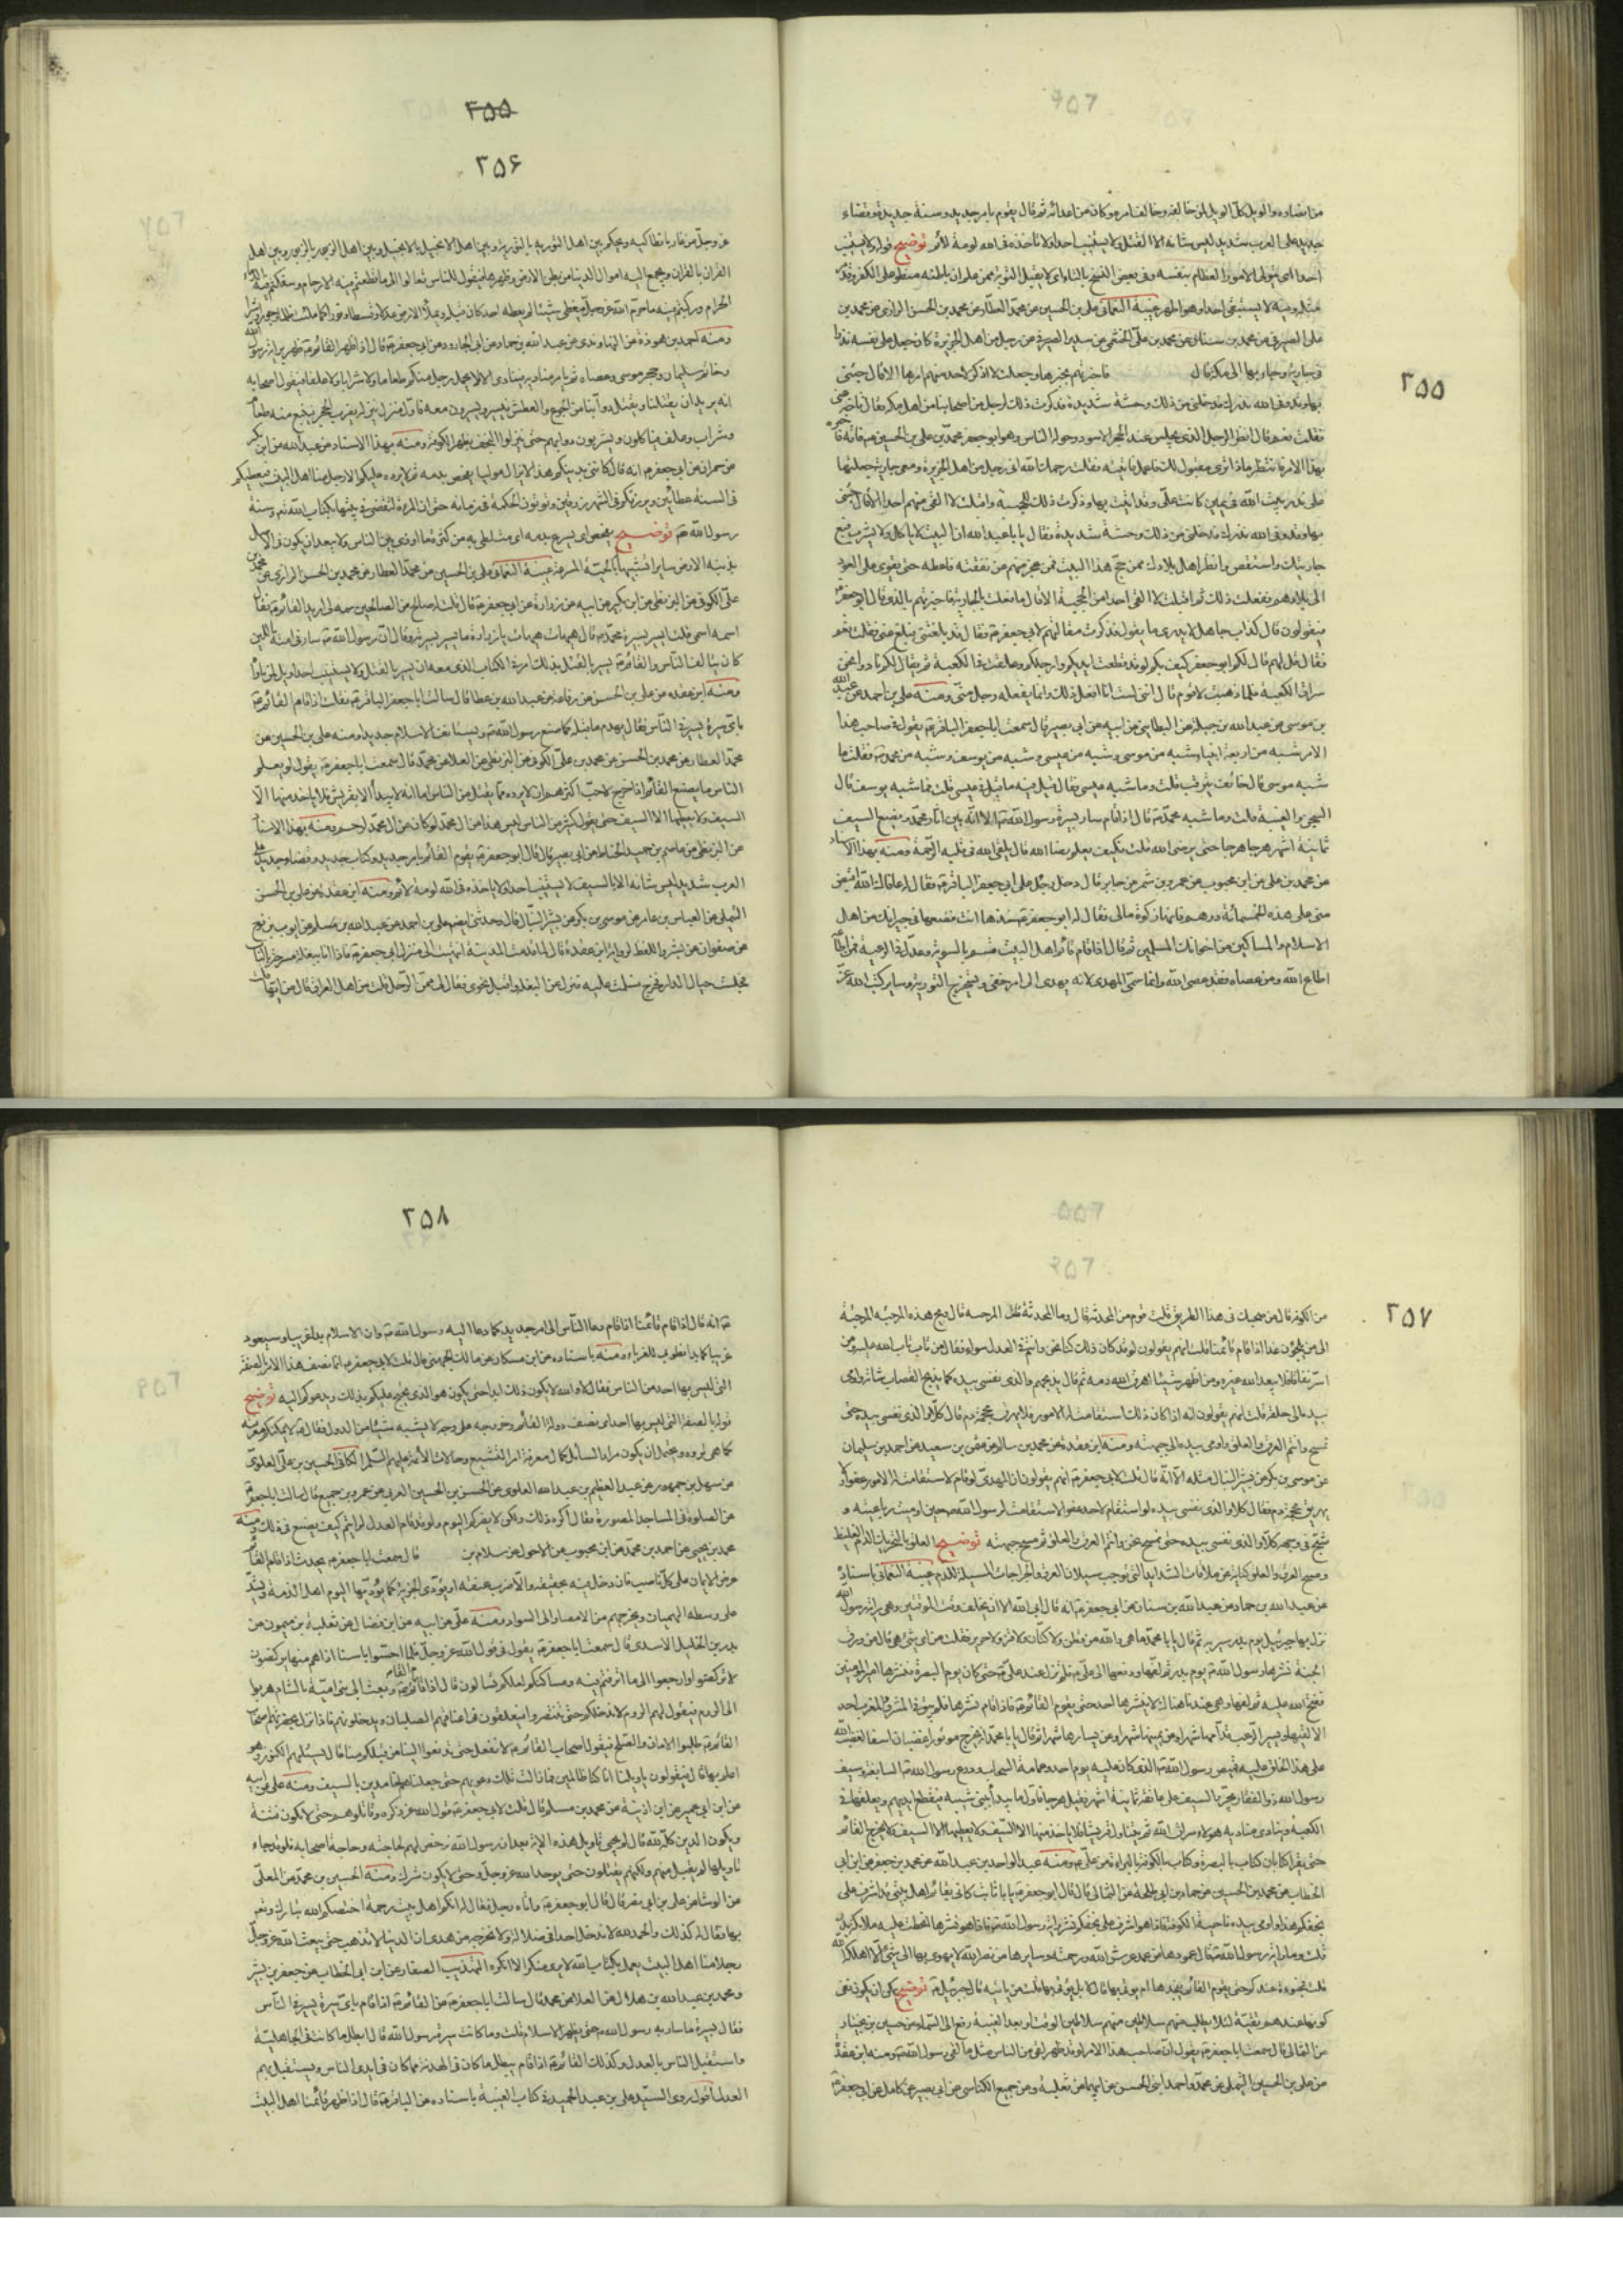 ٢٥٥
من ناواه والويل كل الويل لمن خالفه وخالف امره وكان من اعدائه ثم قال يقوم بامر جديد وسنة جديدة وقضاء
جديد على العرب شديد ليس شانه الا القتل ولا يستنيب احدا ولا تاخذه فى الله لومة لائم توضيح قوله ولا يستنيب
احدا اى يتولى الامور العظام بنفسه وفى بعض النسخ بالتاء اى لا يقبل التوبة ممن علم ان باطنه منطو على الكفر وقد
مثله وفيه لا يستبقى احدا وهو اظهر غيبة النعمانى على بن الحسين عن محمد العطار عن محمد بن الحسن الرازى عن محمد بن
على الصيرفى عن محمد بن سنان عن محمد بن على الخثعمى عن سدير الصيرفى عن رجل من اهل الجزيرة كان جعل على نفسه نذرا
فى جارية وجاء بها الى مكة قال فاخبرتهم بخبرها وجعلت لا اذكر لاحد منهم امرها الا قال جئنى
بها وقد وفى الله نذرك فدخلنى من ذلك وحشة شديدة فذكرت ذلك لرجل من اصحابنا من اهل مكة فقال تاخذ عنى
فقلت نعم فقال انظر الرجل الذى يجلس عند الحجر الاسود وحوله الناس وهو ابو جعفر محمد بن على بن الحسين ع فاته فاخبره
بهذا الامر فانظر ماذا ترى يقول لك فاعمل به فاتيته فقلت رحمك الله انى رجل من اهل الجزيرة ومعى جارية جعلتها
على نذرا لبيت الله فى يمين كانت على وقد اتيت بها وذكرت ذلك للحجبة واقبلت لا القى منهم احدا الا قال جئنى
بها وقد وفى الله نذرك فدخلنى من ذلك وحشة شديدة فقال يا عبد الله ان البيت لا ياكل ولا يشرب فبع
جاريتك واستقص وانظر اهل بلادك ممن حج هذا البيت فمن عجز منهم عن نفقته فاعطه حتى يقوى على العود
الى بلادهم ففعلت ذلك ثم اقبلت لا القى احدا من الحجبة الا قال ما فعلت بالجارية فاخبرتهم بالذى قال ابو جعفر ع
فيقولون هو كذاب جاهل لا يدرى ما يقول فذكرت مقالتهم لابى جعفر ع فقال قد بلغتنى تبلغ عنى فقلت نعم
فقال قل لهم قال لكم ابو جعفر كيف بكم لو قد قطعت ايديكم وارجلكم وعلقت فى الكعبة ثم يقال لكم نادوا نحن
سراق الكعبة فلما ذهبت لاقوم قال اننى لست انا افعل ذلك وانما يفعله رجل منى ومنه على بن احمد عن عبيد الله
بن موسى عن عبد الله بن جبلة عن البطائنى عن ابيه عن ابى بصير قال سمعت ابا جعفر الباقر ع يقول فى صاحب هذا
الامر شبه من اربعة انبياء شبه من موسى وشبه من عيسى وشبه من يوسف وشبه من محمد ص فقلت ما
شبه موسى قال خائف يترقب قلت وما شبه عيسى فقال قيل فيه ما قيل فى عيسى قلت فما شبه يوسف قال
السجن والغيبة قلت وما شبه محمد ص قال اذا قام سار بسيرة رسول الله ص الا انه يبين اثار محمد ويضع السيف
ثمانية اشهر هرجا هرجا حتى يرضى الله قلت فكيف يعلم رضا الله قال يلقى الله فى قلبه الرحمة ومنه بهذا الاسناد
عن محمد بن على عن ابن محبوب عن عمرو بن شمر عن جابر قال دخل رجل على ابى جعفر الباقر ع فقال له عافاك الله اقبض
منى هذه الخمسمائة درهم فانها زكوة مالى فقال له ابو جعفر ع خذها انت فضعها فى جيرانك من اهل
الاسلام والمساكين من اخوانك المسلمين ثم قال اذا قام قائم اهل البيت قسم بالسوية وعدل فى الرعية فمن اطاعه
اطاع الله ومن عصاه فقد عصى الله وانما سمى المهدى لانه يهدى الى امر خفى ويستخرج التورية وساير كتب الله عز
٢٥٥
٢٥۶
عز وجل من غار بانطاكية ويحكم بين اهل التورية بالتورية وبين اهل الانجيل بالانجيل وبين اهل الزبور بالزبور وبين اهل
القران بالقران ويجمع اليه اموال الدنيا من بطن الارض وظهرها فيقول للناس تعالوا الى ما قطعتم فيه الارحام وسفكتم فيه الدماء
الحرام وركبتم فيه ما حرم الله عز وجل فيعطى شيئا لم يعطه احد كان قبله ويملأ الارض عدلا وقسطا ونورا كما ملئت ظلما وجورا وشرا
ومنه احمد بن هوذة عن النهاوندى عن عبد الله بن حماد عن ابى الجارود عن ابى جعفر ع قال اذا ظهر القائم ع ظهر براية رسول الله
وخاتم سليمان وحجر موسى وعصاه ثم يامر مناديه فينادى الا لا يحمل رجل منكم طعاما ولا شرابا ولا علفا فيقول اصحابه
انه يريد ان يقتلنا ويقتل دوابنا من الجوع والعطش فيسير ويسيرون معه فاول منزل ينزله يضرب الحجر فينبع منه طعام
وشراب وعلف فياكلون ويشربون ودوابهم حتى ينزلوا النجف بظهر الكوفة ومنه بهذا الاسناد عن عبد الله عن ابن بكير
عن حمران عن ابى جعفر ع انه قال كاننى بدينكم هذا لا يزال موليا يفحص بدمه ثم لا يرده عليكم الا رجل منا اهل البيت فيعطيكم
فى السنة عطائين ويرزقكم فى الشهر رزقين وتؤتون الحكمة فى زمانه حتى ان المرءة لتقضى فى بيتها بكتاب الله تع وسنة
رسول الله ص توضيح يفحص اى يسرع بدمه اى متلطخا به من كثرة ما اوذى بين الناس ولا يبعد ان يكون فى الاصل
بذنبه الارض سايرا تشبيها بالحية المسرعة غيبة النعمانى على بن الحسين عن محمد العطار عن محمد بن الحسن الرازى عن محمد بن
على الكوفى عن البزنطى عن ابن بكير عن ابيه عن زرارة عن ابى جعفر ع قال قلت له صالح من الصالحين سمه لى اريد القائم ع فقال
اسمه اسمى قلت ايسير بسيرة محمد ص قال هيهات هيهات يا زرارة ما يسير بسيرته وقال ان رسول الله ص سار فى امته باللين
كان يتالف الناس والقائم ع يسير بالقتل بذلك امر فى الكتاب الذى معه ان يسير بالقتل ولا يستتيب احدا ويل لمن ناواه
ومنه ابن عقدة عن على بن الحسن عن رفاعة عن عبد الله بن عطا قال سالت ابا جعفر الباقر ع فقلت اذا قام القائم ع
باى سيرة يسير فى الناس فقال يهدم ما قبله كما صنع رسول الله ص ويستانف الاسلام جديدا ومنه على بن الحسين عن
محمد العطار عن محمد بن الحسن عن محمد بن على الكوفى عن البزنطى عن العلا عن محمد قال سمعت ابا جعفر ع يقول لو يعلم
الناس ما يصنع القائم اذا خرج لاحب اكثرهم ان لا يروه مما يقتل من الناس اما انه لا يبدأ الا بقريش فلا ياخذ منها الا
السيف ولا يعطيها الا السيف حتى يقول كثير من الناس ليس هذا من ال محمد لو كان من ال محمد لرحم ومنه بهذا الاسناد
عن البزنطى عن عاصم بن حميد الحناط عن ابى بصير قال قال ابو جعفر ع يقوم القائم بامر جديد وكتاب جديد وقضاء جديد على
العرب شديد ليس شانه الا بالسيف لا يستتيب احدا ولا ياخذه فى الله لومة لائم ومنه ابن عقدة عن على بن الحسن
التيملى عن العباس بن عامر عن موسى بن بكر عن بشير النبال قال وحدثنى ايضا على بن احمد عن عبيد الله بن مسلم عن ايوب بن نوح
عن صفوان عن بشير واللفظ لرواية ابن عقدة قال لما قدمت المدينة انتهيت الى منزل ابى جعفر ع فاذا انا ببغلة مسرجة بالباب
فجلست حيال الدار فخرج فسلمت عليه فنزل عن البغلة واقبل نحوى فقال لى ممن الرجل قلت من اهل العراق قال من ايها قلت
٢٥٧
من الكوفة قال من صحبك فى هذا الطريق قلت قوم من المحدثة قال وما المحدثة قلت المرجئة قال ويح هذه المرجئة
الى من يلجؤن غدا اذا قام قائمنا قلت انهم يقولون لو قد كان ذلك كنا نحن وانتم فى العدل سواء فقال من تاب تاب الله عليه ومن
اسر نفاقا فلا يبعد الله غيره ومن اظهر شيئا اهرق الله دمه ثم قال يذبحهم والذى نفسى بيده كما يذبح القصاب شاته واومى
بيده الى حلقه قلت انهم يقولون انه اذا كان ذلك استقامت له الامور فلا يهريق محجمة دم قال كلا والذى نفسى بيده حتى
نمسح وانتم العرق والعلق واومى بيده الى جبهته ومنه ابن عقدة عن محمد بن سالم عن عثمن بن سعيد عن احمد بن سليمان
عن موسى بن بكر عن بشير النبال مثله الا انه قال قلت لابى جعفر ع انهم يقولون ان المهدى لو قام لاستقامت له الامور عفوا ولا
يهريق محجمة دم فقال كلا والذى نفسى بيده لو استقام لاحد عفوا لاستقامت لرسول الله ص حين ادميت رباعيته و
شج فى وجهه كلا والذى نفسى بيده حتى نمسح نحن وانتم العرق والعلق ثم مسح جبهته توضيح العلق بالتحريك الدم الغليظ
ومسح العرق والعلق كناية عن ملاقات الشدايد التى توجب سيلان العرق والجراحات المسيلة للدم غيبة النعمانى باسناده
عن عبد الله بن حماد عن عبد الله بن سنان عن ابى جعفر ع انه قال ابى الله الا ان يخلف وقت الموقتين وهى راية رسول الله
نزل بها جبرئيل يوم بدر سير به ثم قال يا با محمد ما هى والله من قطن ولا كتان ولا قز ولا حرير فقلت من اى شئ هى قال من ورق
الجنة نشرها رسول الله ص يوم بدر ثم لفها ودفعها الى على ع فلم تزل عند على ع حتى كان يوم البصرة فنشرها امير المومنين
ففتح الله عليه ثم لفها وهى عندنا هناك لا ينشرها احد حتى يقوم القائم ع فاذا قام نشرها فلم يبق فى المشرق والمغرب احد
الا لقيها ويسير الرعب قدامها شهرا وعن يمينها شهرا وعن يسارها شهرا ثم قال يا با محمد انه يخرج موتورا غضبان اسفا لغضب الله
على هذا الخلق عليه قميص رسول الله ص الذى كان عليه يوم احد وعمامته السحاب ودرع رسول الله ص السابغة وسيف
رسول الله ذو الفقار يجرد السيف على عاتقه ثمانية اشهر يقتل هرجا فاول ما يبدأ ببنى شيبة فيقطع ايديهم ويعلقها فى
الكعبة وينادى مناديه هولاء سراق الله ثم يتناول قريشا فلا ياخذ منها الا السيف ولا يعطيها الا السيف ولا يخرج القائم
حتى يقرأ كتابان كتاب بالبصرة وكتاب بالكوفة بالبراءة من على ع ومنه عبد الواحد بن عبد الله عن محمد بن جعفر عن ابن ابى
الخطاب عن محمد بن الحسين عن حماد بن ابى طلحة عن الثمالى قال قال ابو جعفر ع يا با ثابت كانى بقائم اهل بيتى قد اشرف على
نجفكم هذا واومى بيده ناحية الكوفة فاذا هو اشرف على نجفكم نشر راية رسول الله ص فاذا هو نشرها انحطت عليه ملائكة بدر
قلت وما راية رسول الله ص قال عمودها من عمد عرش الله ورحمته وسايرها من نصر الله لا يهوى بها الى شئ الا اهلكه الله
قلت مخبوءة عندكم حتى يقوم القائم فيجدها ام يؤتى بها قال لا بل يؤتى بها قلت من ياتيه قال جبرئيل ع توضيح يمكن ان يكون نفى
كونها عندهم تقية لئلا يطلب منهم سلاطين الوقت او بعد الغيبة رفع الى السماء عن حسين بن بختيار
عن الثمالى قال سمعت ابا جعفر ع يقول ان صاحب هذا الامر لو قد ظهر لقى من الناس مثل ما لقى رسول الله ص ومنه ابن عقدة
عن على بن الحسين التيملى عن محمد واحمد ابنى الحسن عن ابيهما عن ثعلبة وعن جميع الكناسى عن ابى بصير عن كامل عن ابى جعفر ع
٢٥٨
ع انه قال اذا قام قائمنا اذا قام دعا الناس الى امر جديد كما دعا اليه رسول الله ص وان الاسلام بدأ غريبا وسيعود
غريبا كما بدا فطوبى للغرباء ومنه باسناده عن ابن مسكان عن مالك الجهنى قال قلت لابى جعفر ع انا نصف هذا الامر بالصفة
التى ليس بها احد من الناس فقال لا والله لا يكون ذلك ابدا حتى يكون هو الذى يحتج عليكم بذلك ويدعوكم اليه توضيح
قوله بالصفة التى ليس بها احد اى نصف دولة القائم وخروجه على وجه لا يشبه شيئا من الدول فقال ع لا يمكنكم معرفته
كما هى لم تروه ويحتمل ان يكون مراد السائل كمال معرفة امر التشيع وحالات الائمة عليهم السلم الكافى الحسين بن على العلوى
عن سهل بن جمهور عن عبد العظيم بن عبد الله العلوى عن الحسن بن الحسين العرنى عن عمرو بن جميع قال سالت ابا جعفر ع
عن الصلوة فى المساجد المصورة فقال اكره ذلك ولكن لا يضركم اليوم ولو قد قام العدل لرايتم كيف يصنع فى ذلك ومنه
محمد بن يحيى عن احمد بن محمد عن ابن محبوب عن الاحول عن سلام بن قال سمعت ابا جعفر ع يحدث اذا قام القائم
عرض الايمان على كل ناصب فان دخل فيه بحقيقة والا ضرب عنقه او يؤدى الجزية كما يؤديها اليوم اهل الذمة ويشد
على وسطه الهميان ويخرجهم من الامصار الى السواد ومنه على عن ابيه عن ابن فضال عن ثعلبة بن ميمون عن
بدر بن الخليل الاسدى قال سمعت ابا جعفر ع يقول فى قول الله عز وجل فلما احسوا باسنا اذا هم منها يركضون
لا تركضوا وارجعوا الى ما اترفتم فيه ومساكنكم لعلكم تسالون قال اذا قام القائم ع وبعث الى بنى امية بالشام هربوا
الى الروم فيقول لهم الروم لا ندخلكم حتى تتنصروا فيعلقون فى اعناقهم الصلبان ويدخلونهم فاذا نزل بحضرتهم اصحاب
القائم ع طلبوا الامان والصلح فيقول اصحاب القائم ع لا نفعل حتى تدفعوا الينا من قبلكم منا قال يسئلهم الكنوز وهو
اعلم بها قال فيقولون يا ويلنا انا كنا ظالمين فما زالت تلك دعويهم حتى جعلناهم حصيدا خامدين بالسيف ومنه على عن ابيه
عن ابن ابى عمير عن ابن اذينة عن محمد بن مسلم قال قلت لابى جعفر ع قول الله عز ذكره وقاتلوهم حتى لا تكون فتنة
ويكون الدين كله لله قال لم يجئ تاويل هذه الاية بعد ان رسول الله رخص لهم لحاجته وحاجة اصحابه فلو قد جاء
تاويلها لم يقبل منهم ولكنهم يقتلون حتى يوحد الله عز وجل وحتى لا يكون شرك ومنه الحسين بن محمد عن المعلى
عن الوشا عن على بن ابى قال قال ابو جعفر ع واتاه رجل فقال له انكم اهل بيت رحمة اختصكم الله تبارك وتع
بها فقال له كذلك والحمد لله لا ندخل احدا فى ضلالة ولا نخرجه من هدى ان الدنيا لا تذهب حتى يبعث الله عز وجل
رجلا منا اهل البيت يعمل بكتاب الله لا يرى منكرا الا انكره التهذيب الصفار عن ابن ابى الخطاب عن جعفر بن بشير
ومحمد بن عبد الله بن هلال عن العلا عن محمد قال سالت ابا جعفر ع عن القائم ع اذا قام باى سيرة يسير فى الناس
فقال بسيرة ما سار به رسول الله ص حتى يظهر الاسلام قلت وما كانت سيرة رسول الله قال ابطل ما كانت فى الجاهلية
واستقبل الناس بالعدل وكذلك القائم ع اذا قام يبطل ما كان فى الهدنة مما كان فى ايدى الناس ويستقبل بهم
العدل اقول روى السيد على بن عبد الحميد فى كتاب الغيبة باسناده عن الباقر ع قال اذا ظهر قائمنا اهل البيت